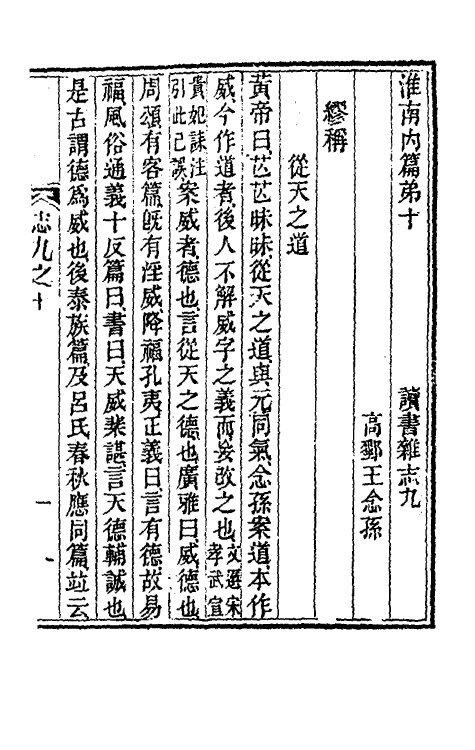 淮南內篇弟十 讀書雜志九
高郵王念孫
繆稱
從天之道
黃帝曰芒芒昧昧從天之道與元同氣念孫案道本作
威今作道者後人不解威字之義而妄改之也文選宋孝武宣
貴妃誄注引此已誤案威者德也言從天之德也廣雅曰威德也
周頌有客篇旣有淫威降福孔夷正義曰言有德故易
福風俗通義十反篇曰書曰天威棐諶言天德輔誠也
是古謂德爲威也後泰族篇及呂氏春秋應同篇竝云
志九之十
一